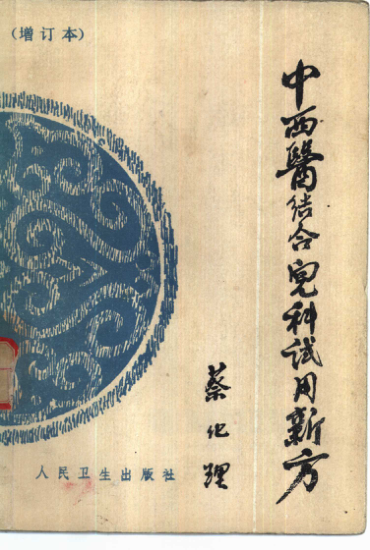 （增订本）
中西醫结合兒科试用新方
蔡化理
人民卫生出版社